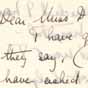 Dear Miss D
I have g
they say, (
have asked